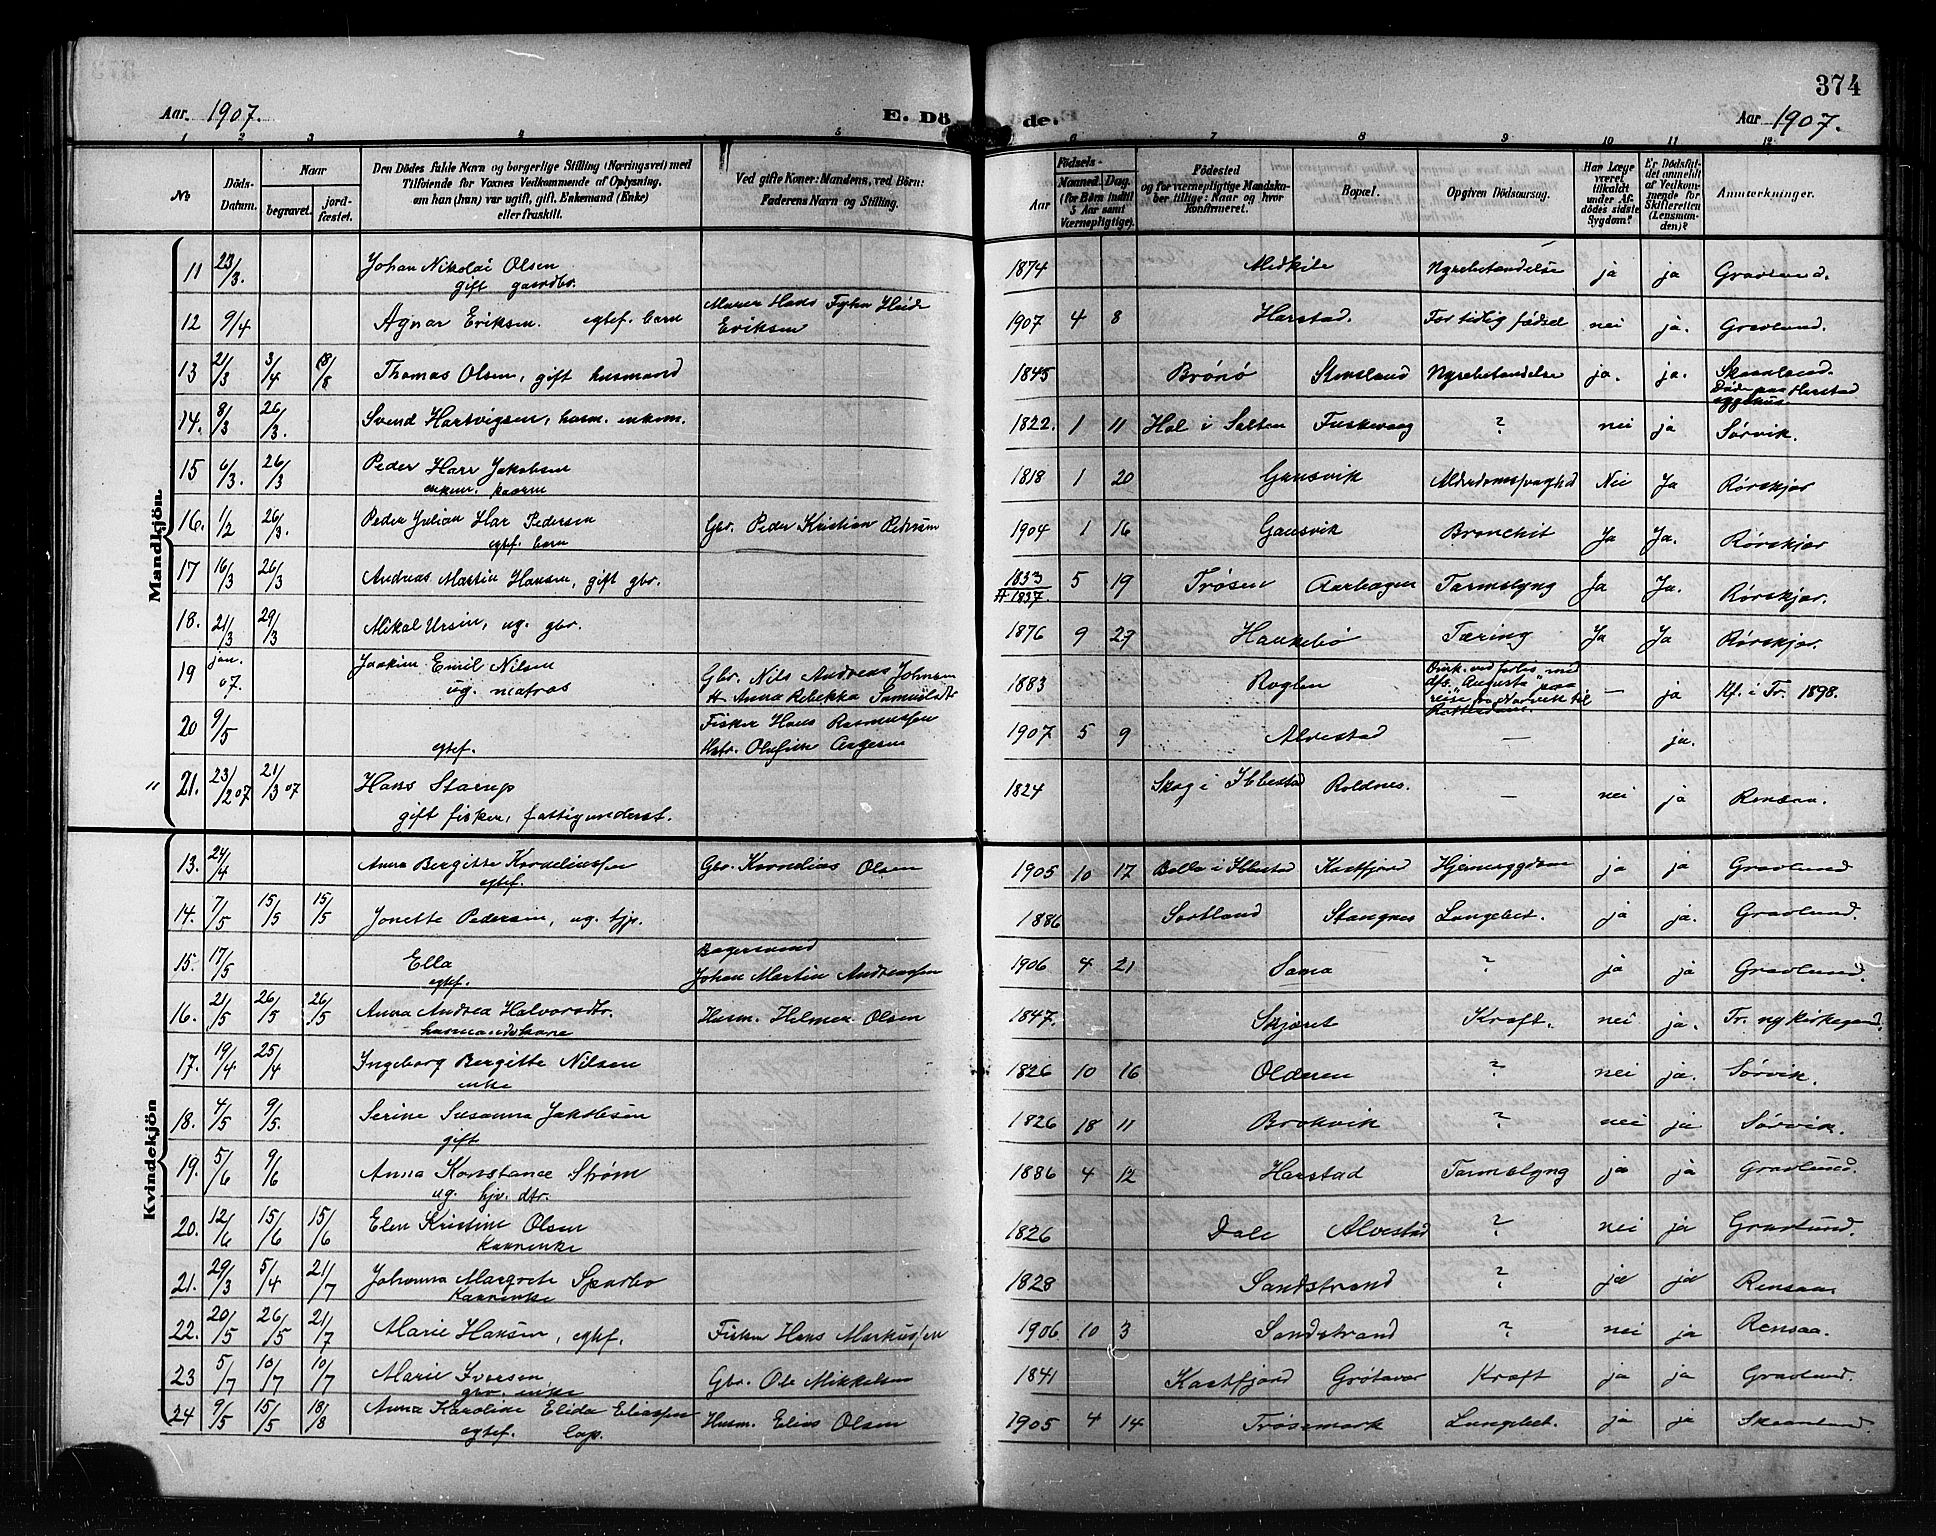 374
Aar 1907. E. Dö de. Aar 1907.
1 2 3 4 5 6 7 8 9 10 11 12
No
Döds-Datum.
Naar begravet. jordfæstet.
Den Dödes fulde Navn og borgerlige Stilling (Næringsvei) med Tilföiende for Voxnes Vedkommende af Oplysning, om han (hun) var ugift, gift, Enkemand (Enke) eller fraskilt.
Ved gifte Koner: Mandens, ved Börn: Faderens Navn og Stilling.
Födsels-Aar Maaned. Dag. (for Börn indtil 5 Aar samt Værnepligtige).
Födested og for værnepligtige Mandskaber tillige: Naar og hvor konfirmeret.
Bopæl.
Opgiven Dödsaarsag.
Har Læge været tilkaldt under Afdödes sidste Sygdom?
Er Dödsfaldet anmeldt af Vedkommende for Skifteretten (Lensmanden)?
Anmærkninger.
Mandkjön.
11 23/3. Johan Nikolai Olsen gift gaardbr. 1874 Medkile Nyrebetændelse ja ja Gravlund.
12 9/4 Agnar Eriksen. egtef. barn Murer Hans Eriksen 1907 4 8 Harstad. For tidlig födsel nei ja. Gravlund.
13 21/3 3/4 18/8 Thomas Olsen, gift husmand 1845 Brönö Stensland Nyrebetændelse ja. ja. Skaanland. Död paa Harstad sygehus
14. 8/3 26/3. Svend Hartvigsen, husm. enkem. 1822. 1 11 Hol i Salten Fuskevaag ? nei ja Sørvik.
15 6/3. 26/3 Peder Harr Jakobsen enkem. kaarm 1818 1 20 Gansvik Alderdomssvaghed Nei Ja Rørskjær
16. 1/2 26/3. Peder Julian Har Pedersen egtef. barn Gbr. Peder Kristian Pedersen 1904 1 16 Gansvik Bronchit Ja Ja. Rørskjær
17 16/3 26/3 Andreas Martin Hansen, gift gbr. 1833 # 1837. 5 19 Trøsen Aarbogen Tarmslyng Ja Ja. Rørskjær.
18. 21/3 29/3 Mikal Ursin, ug. gbr. 1876 9 29 Haukebø Tæring Ja Ja Rørskjær.
19 jan. 07. Joakim Emil Nilsen ug. matros Gbr. Nils Andreas Johnsen H Anna Rebekka Samuelsdtr 1883 Rogla Omk. ved forlis med dfs. "Augusta" paa reise fra Narvik til Rotterdam. — ja Kf. i Tr. 1898.
20 9/5 egtef. Fisker Hans Rasmussen Hstr. Olufine 1907 5 9 Alvestad — ja.
" 21. 23/2 07 21/3 07 Hans Starup gift fisker, fattigunderst. 1824 Skog i Ibbestad Roldnes. — nei ja Rensaa.
Kvindekjön
13. 24/4 Anna Bergitte Korneliussen egtef. Gbr. Kornelius Olsen 1905 10 17 Bolla i Ibbestad Kastfjord ja ja Gravlund
14. 7/5 15/5 15/5 Jonette Pedersen, ug. tjp. 1886 Sortland Stangnes Lungebet. ja ja. Gravlund.
15. 17/5 Ella egtef. Bagersvend Johan Martin Andreassen 1906 4 21 Sama ? ja ja Gravlund.
16. 21/5 26/5 26/5 Anna Andrea Halvorsdtr. husmandskone Husm. Helmer Olsen 1847. Skjæret Kræft. nei ja. Tr. ny kirkegaard.
17. 19/4 25/4 Ingeborg Bergitte Nilsen enke 1826 10 16 Olderen ? nei ja. Sørvik.
18. 4/5 9/5. Serine Susanna Jakobsen gift 1826 18 11 Brokvik ? nei ja Sørvik.
19. 5/6 9/6 Anna Konstance Strøm ug. hjv. dtr. 1886 4 12 Harstad Tarmslyng ja ja Gravlund.
20. 12/6 15/6 15/6 Elen Kristine Olsen Kaarenke 1826 Dale Alvestad ? nei ja Gravlund.
21. 29/3 5/4 21/7 Johanna Margrete Sparbo Kaarenke 1828 Sandstrand ? ja ja Rensaa
22. 20/5 26/5 21/7 Marie Hansen, egtef. Fisker Hans Markussen 1906 10 3 Sandstrand ? nei ja Rensaa.
23 5/7 10/7 10/7 Marie Iversen, gbr. enke Gbr. Ole Mikkelsen 1841 Kastfjord Grötavær Kræft ja ja Gravlund.
24 9/5 15/5 18/8 Anna Karoline Elida Eliassen egtef. Lap. Husm. Elias Olsen 1905 4 14 Trøsemark Lungebet. ja ja Skaanland